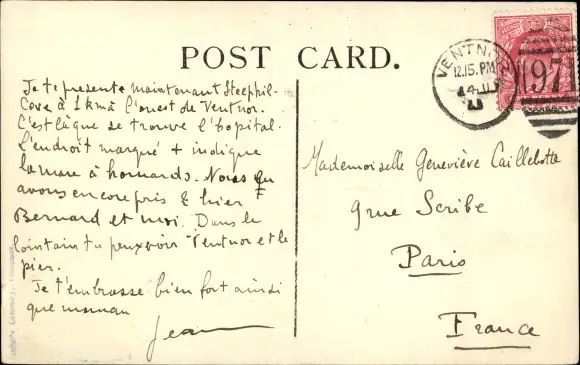 POST CARD.
Je te presente maintenant Steephil-
Cove à 1 km à l'ouest de Ventnor.
C'est là que se trouve l'hopital.
L'endroit marqué + indique
la mare à homards. Nous en
avons encore pris 2 hier
Bernard et moi. Dans le
lointain tu peux voir Ventnor et le
pier.
Je t'embrasse bien fort ainsi
que maman
Jean
VENTNOR
12.15.PM
197
Mademoiselle Geneviève Caillebotte
9 rue Scribe
Paris
France